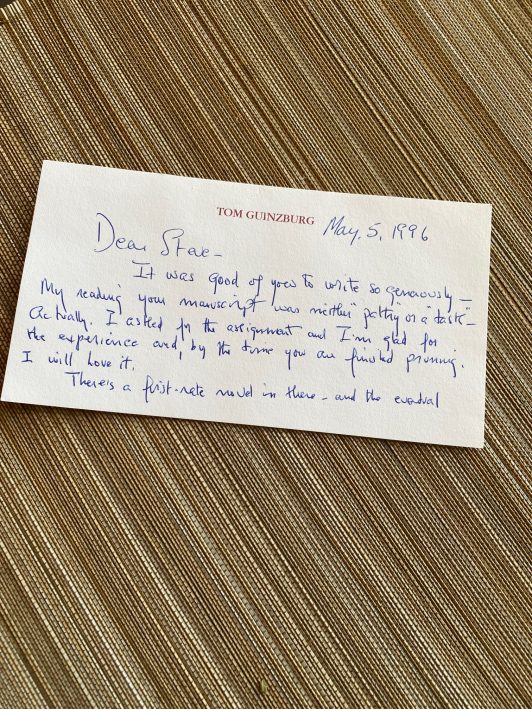 TOM GUINZBURG May. 5, 1996
Dear Steve-
It was good of you to write so generously —
My reading your manuscript was neither "paltry or a task" —
Actually, I asked for the assignment and I'm glad for
the experience and, by the time you are finished pruning,
I will love it.
There's a first-rate novel in there - and the eventual